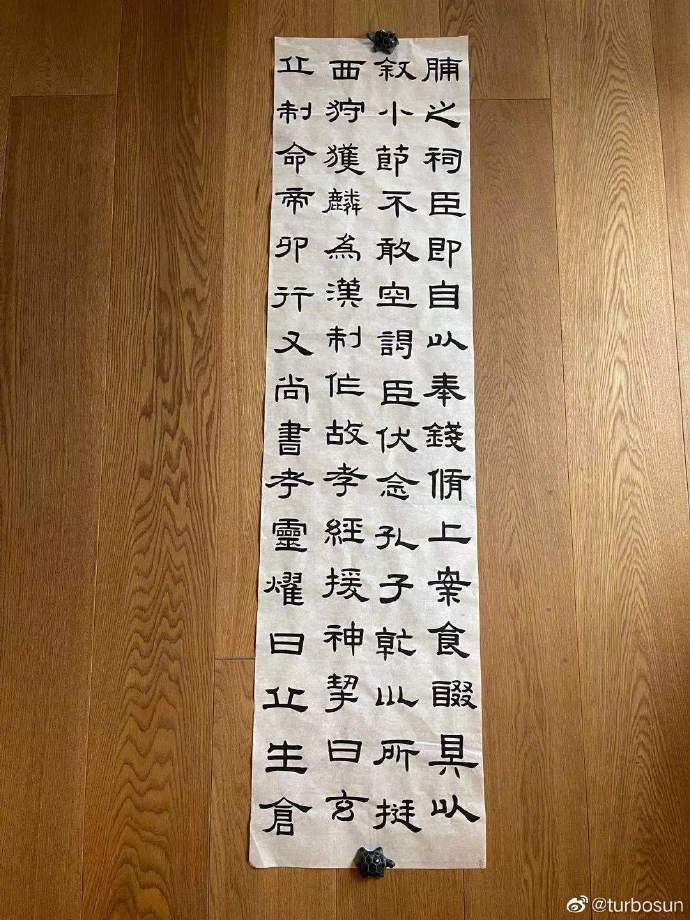 脯之祠臣即自以奉錢脩上案食醊具以
叙小節不敢空謁臣伏念孔子乾坤所挺
西狩獲麟為漢制作故孝經援神挈曰玄
丘制命帝卯行又尚書考靈燿曰丘生倉
@turbosun